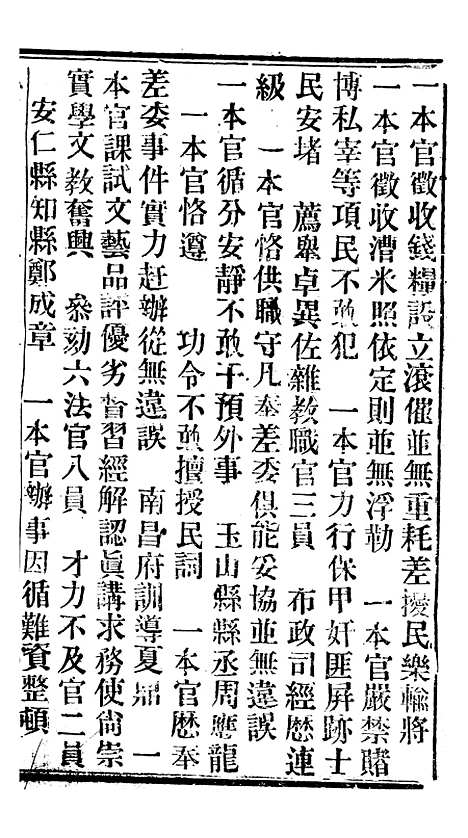 一本官徵收錢糧設立滾催並無重耗差擾民樂輸將
一本官徵收漕米照依定則並無浮勒　一本官嚴禁賭
博私宰等項民不敢犯　一本官力行保甲奸匪屏跡士
民安堵　薦舉卓異佐雜教職官三員　布政司經歷連
級　一本官恪供職守凡奉差委俱能妥協並無違誤
一本官循分安靜不敢干預外事　玉山縣縣丞周應龍
一本官恪遵　功令不敢擅授民詞　一本官歷奉
差委事件實力赶辦從無違誤　南昌府訓導夏鼎　一
本官課試文藝品評優劣督習經解認眞講求務使尙崇
實學文教奮興　叅劾六法官八員　才力不及官二員
安仁縣知縣鄭成章　一本官辦事因循難資整頓